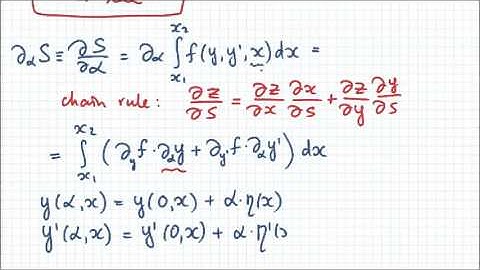 ∂αS ≡ ∂S/∂α = ∂α ∫_{x₁}^{x₂} f(y, y', x) dx =
chain rule: ∂z/∂s = ∂z/∂x ∂x/∂s + ∂z/∂y ∂y/∂s
= ∫_{x₁}^{x₂} (∂_y f · ∂αy + ∂_y' f · ∂αy') dx
y(α, x) = y(0, x) + α · η(x)
y'(α, x) = y'(0, x) + α · η'(x